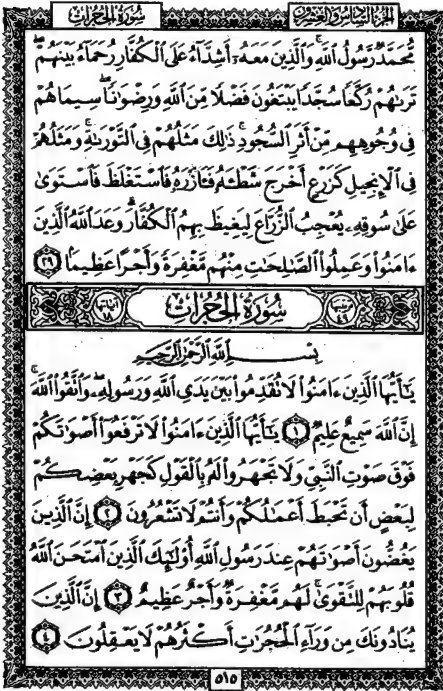 الجزء السادس والعشرون
سورة الحجرات
مُّحَمَّدٌ رَّسُولُ ٱللَّهِ ۚ وَٱلَّذِينَ مَعَهُۥٓ أَشِدَّآءُ عَلَى ٱلْكُفَّارِ رُحَمَآءُ بَيْنَهُمْ ۖ
تَرَىٰهُمْ رُكَّعًا سُجَّدًا يَبْتَغُونَ فَضْلًا مِّنَ ٱللَّهِ وَرِضْوَٰنًا ۖ سِيمَاهُمْ
فِى وُجُوهِهِم مِّنْ أَثَرِ ٱلسُّجُودِ ۚ ذَٰلِكَ مَثَلُهُمْ فِى ٱلتَّوْرَىٰةِ ۚ وَمَثَلُهُمْ
فِى ٱلْإِنجِيلِ كَزَرْعٍ أَخْرَجَ شَطْـَٔهُۥ فَـَٔازَرَهُۥ فَٱسْتَغْلَظَ فَٱسْتَوَىٰ
عَلَىٰ سُوقِهِۦ يُعْجِبُ ٱلزُّرَّاعَ لِيَغِيظَ بِهِمُ ٱلْكُفَّارَ ۗ وَعَدَ ٱللَّهُ ٱلَّذِينَ
ءَامَنُوا۟ وَعَمِلُوا۟ ٱلصَّـٰلِحَـٰتِ مِنْهُم مَّغْفِرَةً وَأَجْرًا عَظِيمًۢا ٢٩
ترتيبها ٤٩ سُورَةُ الحُجُرَاتِ آياتها ١٨
بِسْمِ ٱللَّهِ ٱلرَّحْمَـٰنِ ٱلرَّحِيمِ
يَـٰٓأَيُّهَا ٱلَّذِينَ ءَامَنُوا۟ لَا تُقَدِّمُوا۟ بَيْنَ يَدَىِ ٱللَّهِ وَرَسُولِهِۦ ۖ وَٱتَّقُوا۟ ٱللَّهَ ۚ
إِنَّ ٱللَّهَ سَمِيعٌ عَلِيمٌ ١ يَـٰٓأَيُّهَا ٱلَّذِينَ ءَامَنُوا۟ لَا تَرْفَعُوٓا۟ أَصْوَٰتَكُمْ
فَوْقَ صَوْتِ ٱلنَّبِىِّ وَلَا تَجْهَرُوا۟ لَهُۥ بِٱلْقَوْلِ كَجَهْرِ بَعْضِكُمْ
لِبَعْضٍ أَن تَحْبَطَ أَعْمَـٰلُكُمْ وَأَنتُمْ لَا تَشْعُرُونَ ٢ إِنَّ ٱلَّذِينَ
يَغُضُّونَ أَصْوَٰتَهُمْ عِندَ رَسُولِ ٱللَّهِ أُو۟لَـٰٓئِكَ ٱلَّذِينَ ٱمْتَحَنَ ٱللَّهُ
قُلُوبَهُمْ لِلتَّقْوَىٰ ۚ لَهُم مَّغْفِرَةٌ وَأَجْرٌ عَظِيمٌ ٣ إِنَّ ٱلَّذِينَ
يُنَادُونَكَ مِن وَرَآءِ ٱلْحُجُرَٰتِ أَكْثَرُهُمْ لَا يَعْقِلُونَ ٤
٥١٥